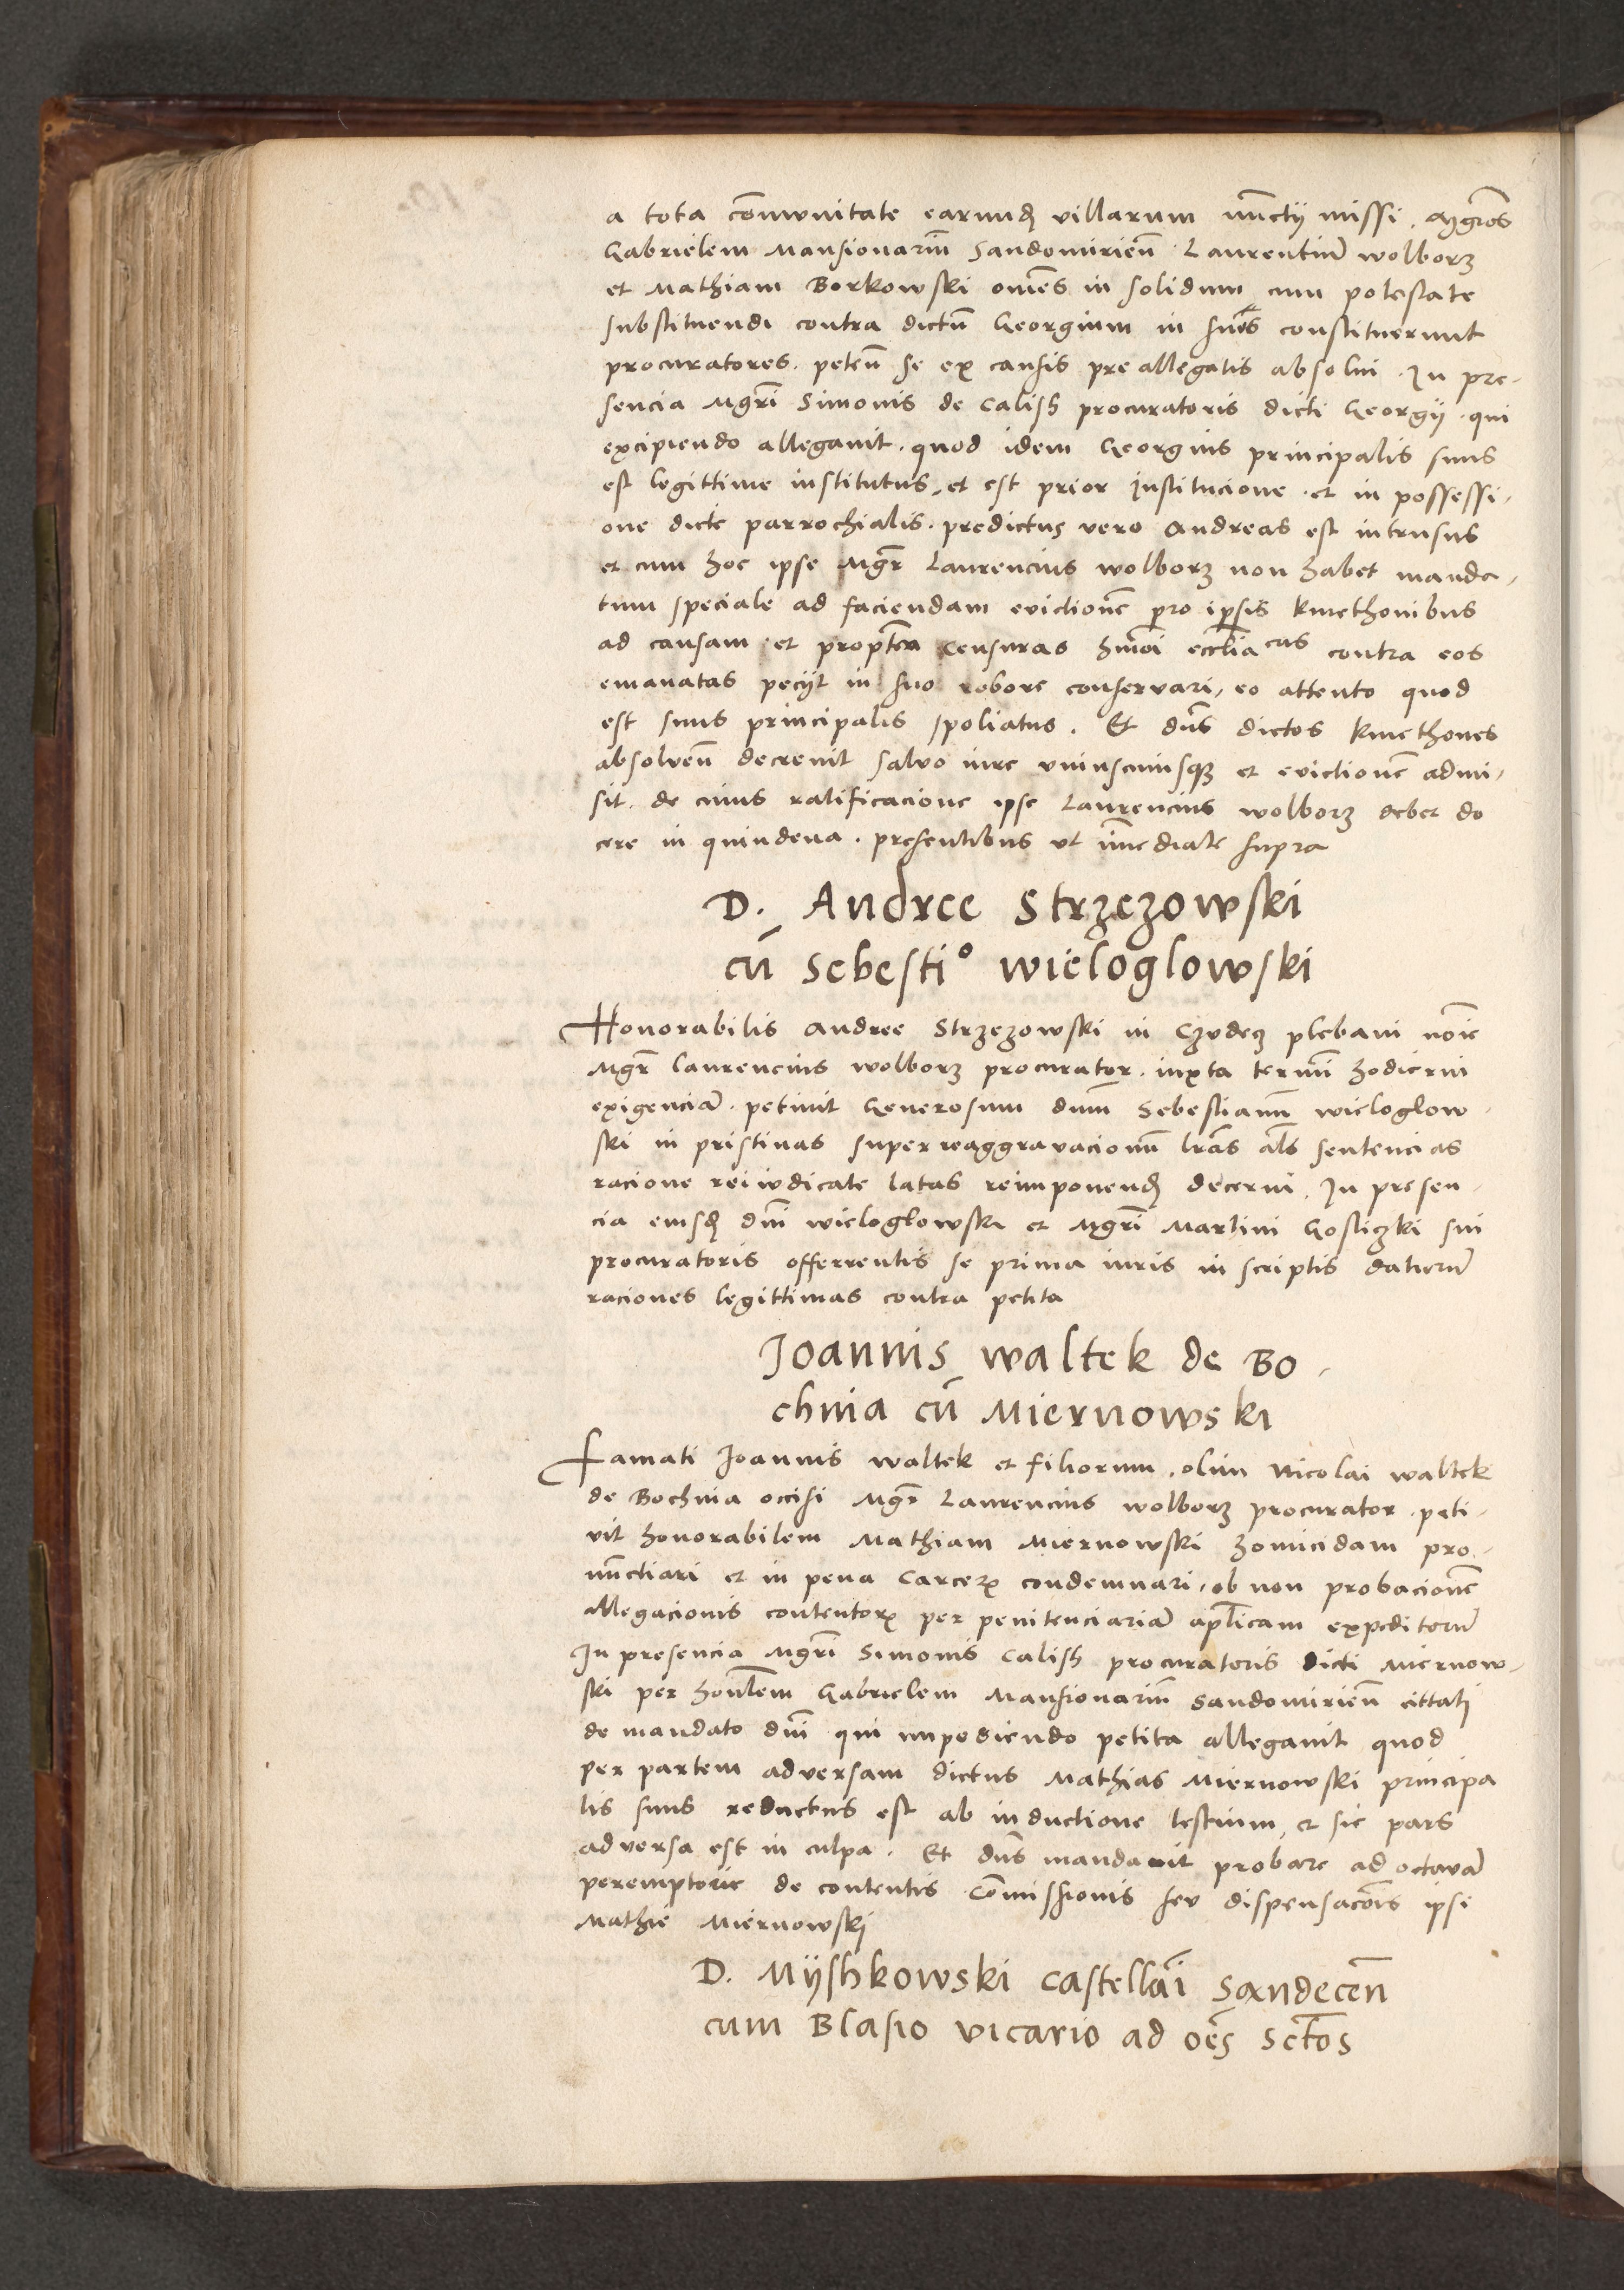 a tota cōmunitate earundꝫ villarum nūctij missi. Mgros
Gabrielem Mansionariū Sandomirieñ Laurentiū wolborz
et Mathiam Borkowski omēs in solidum cum potestate
substituendi contra dictū Georgium in suos constituerunt
procuratores. peteñ se ex causis pre allegatis absolui. In pre-
sencia Mgrī Simonis de Calish procuratoris dicti Georgij. qui
excipiendo allegauit. quod idem Georgius principalis suus
est legittime institutus, et est prior Institucione. et in possessi-
one dicte parrochialis. predictus vero Andreas est intrusus
et cum hoc ipse Mgr̄ Laurencius wolborz non habet manda-
tum speciale ad faciendam evictionē pro ipsis kmethonibus
ad causam. et propterea censuras hmōi eccliacas contra eos
emanatas pecijt in suo robore conservari, eo attento quod
est suus principalis spoliatus. Et dn̄s dictos kmethones
absolveñ decreuit salvo iure vniuscuiusqꝫ et evictionē admi-
sit. de cuius ratificacione ipse Laurencius wolborz debet do
cere in quindena. presentibus vt im̄ediate supra
D. Andree Strzezowski
cū Sebestiº wieloglowski
Honorabilis Andree Strzezowski in Czudecz plebani noīe
Mgr̄ Laurencius wolborz procurator. iuxta termī hodierni
exigenciā. petiuit Generosum dnm̄ Sebestianū wieloglow-
ski in pristinas super reaggravacionū lrās als sentencias
racione rei iudicate latas reimponendꝫ decerni. In presen-
cia eiusdꝫ dnī wieloglowski et Mgrī Martini Gosliczki sui
procuratoris offerrentis se prima iuris in scriptis daturū
raciones legittimas contra petita
Joannis waltek de Bo-
chnia cū Miernowski
Famati Joannis waltek et filiorum. olim Nicolai waltek
de Bochnia occisi Mgr̄ Laurencius wolborz procurator. peti-
vit honorabilem Mathiam Miernowski homicidam pro-
nūctiari et in pena carcerꝫ condemnari, ob non probacionē
allegacionis contentorꝫ per penitenciariā aplicam expeditorū
In presencia Mgrī Simonis Calish procuratoris dicti Miernow-
ski per honlem Gabrielem Mansionariū Sandomirieñ cittati
de mandato dnī qui impediendo petita allegauit quod
per partem adversam dictus Mathias Miernowski principa
lis suus reductus est ab inductione testium, et sic pars
adversa est in culpa. Et dn̄s mandauit probare ad octavā
peremptorie de contentis Cōmissionis seu dispensacōis ipsi
Mathie Miernowskj
D. Mijshkowski castellāi Sandeceñ
cum Blasio vicario ad oēs Sctōs